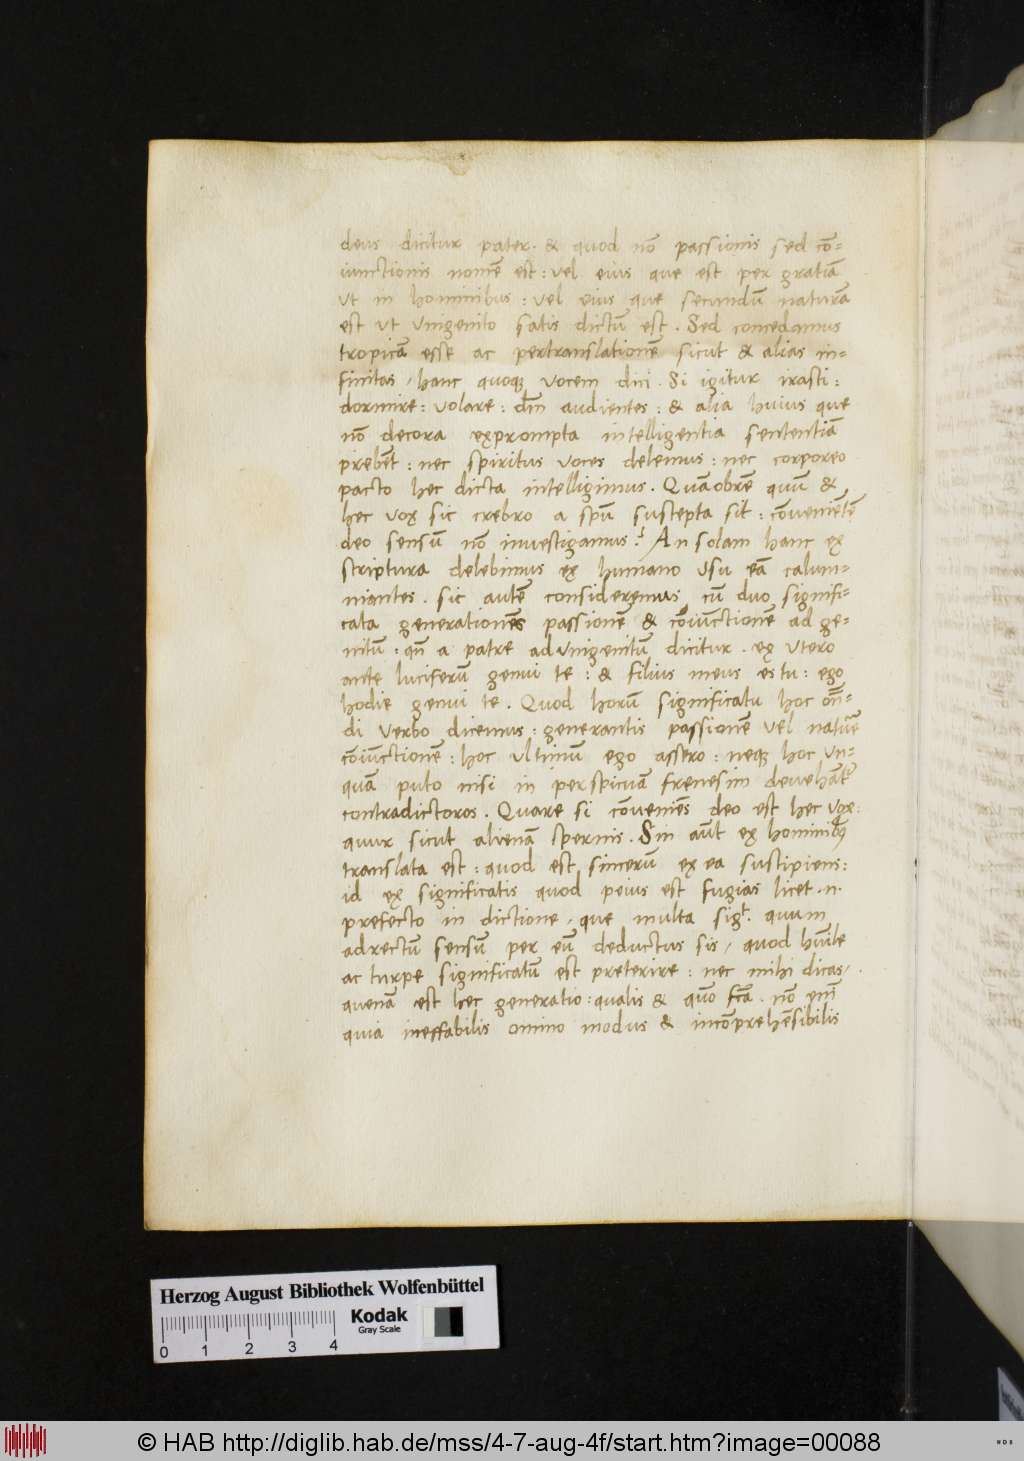 deus dicitur pater. & quod nō passionis sed cō=
iunctionis nomē est: vel eius que est per gratiā
vt in hominibus: vel eius que secundū naturā
est vt vnigenito satis dictū est. Sed concedamus
tropicā esse ac pertranslationē sicut & alias in=
finitas, hanc quoqꝫ vocem dici. Si igitur irasti:
dormire: volare: dm̄ audientes: & alia huius que
nō decora exprompta intelligentia sententiā
prebēt: nec spiritus voces delemus: nec corporeo
pacto hec dicta intelligimus. Quāobrē quū &
hec vox sic crebro a spū suscepta sit: cōueniētē
deo sensū nō inuestigamus? An solam hanc ex
scriptura delebimus ex humano vsu eā calum=
niantes. sic autē consideremus cū duo signifi=
cata generationēs passionē & cōiūctionē ad ge=
nitū: qn̄ a patre ad vnigenitū dicitur. ex vtero
ante luciferū genui te: & filius meus es tu: ego
hodie genui te. Quod horū significatu hoc on̄=
di verbo dicemus: generantis passionē vel naturē
cōiūctionē: hoc vltimū ego assero: neqꝫ hoc vn=
quā puto nisi in perspicuā frenesim deuehāt᷑
contradictoros. Quare si cōueniēs deo est hec vox:
quur sicut alienā spernis. Sin aūt ex hominibꝫ
translata est: quod est sincerū ex ea suscipiens:
id ex significatis quod peius est fugias licet .n.
prefecto in dictione, que multa sigt. quum
ad rectū sensū per eū deductus sis, quod humile
ac turpe significatū est preterire: nec mihi dicas,
quenā est hec generatio: qualis & quō fcā. nō enī
quia ineffabilis omino modus & incōprehēsibilis
Herzog August Bibliothek Wolfenbüttel
Kodak
Gray Scale
0 1 2 3 4
© HAB http://diglib.hab.de/mss/4-7-aug-4f/start.htm?image=00088